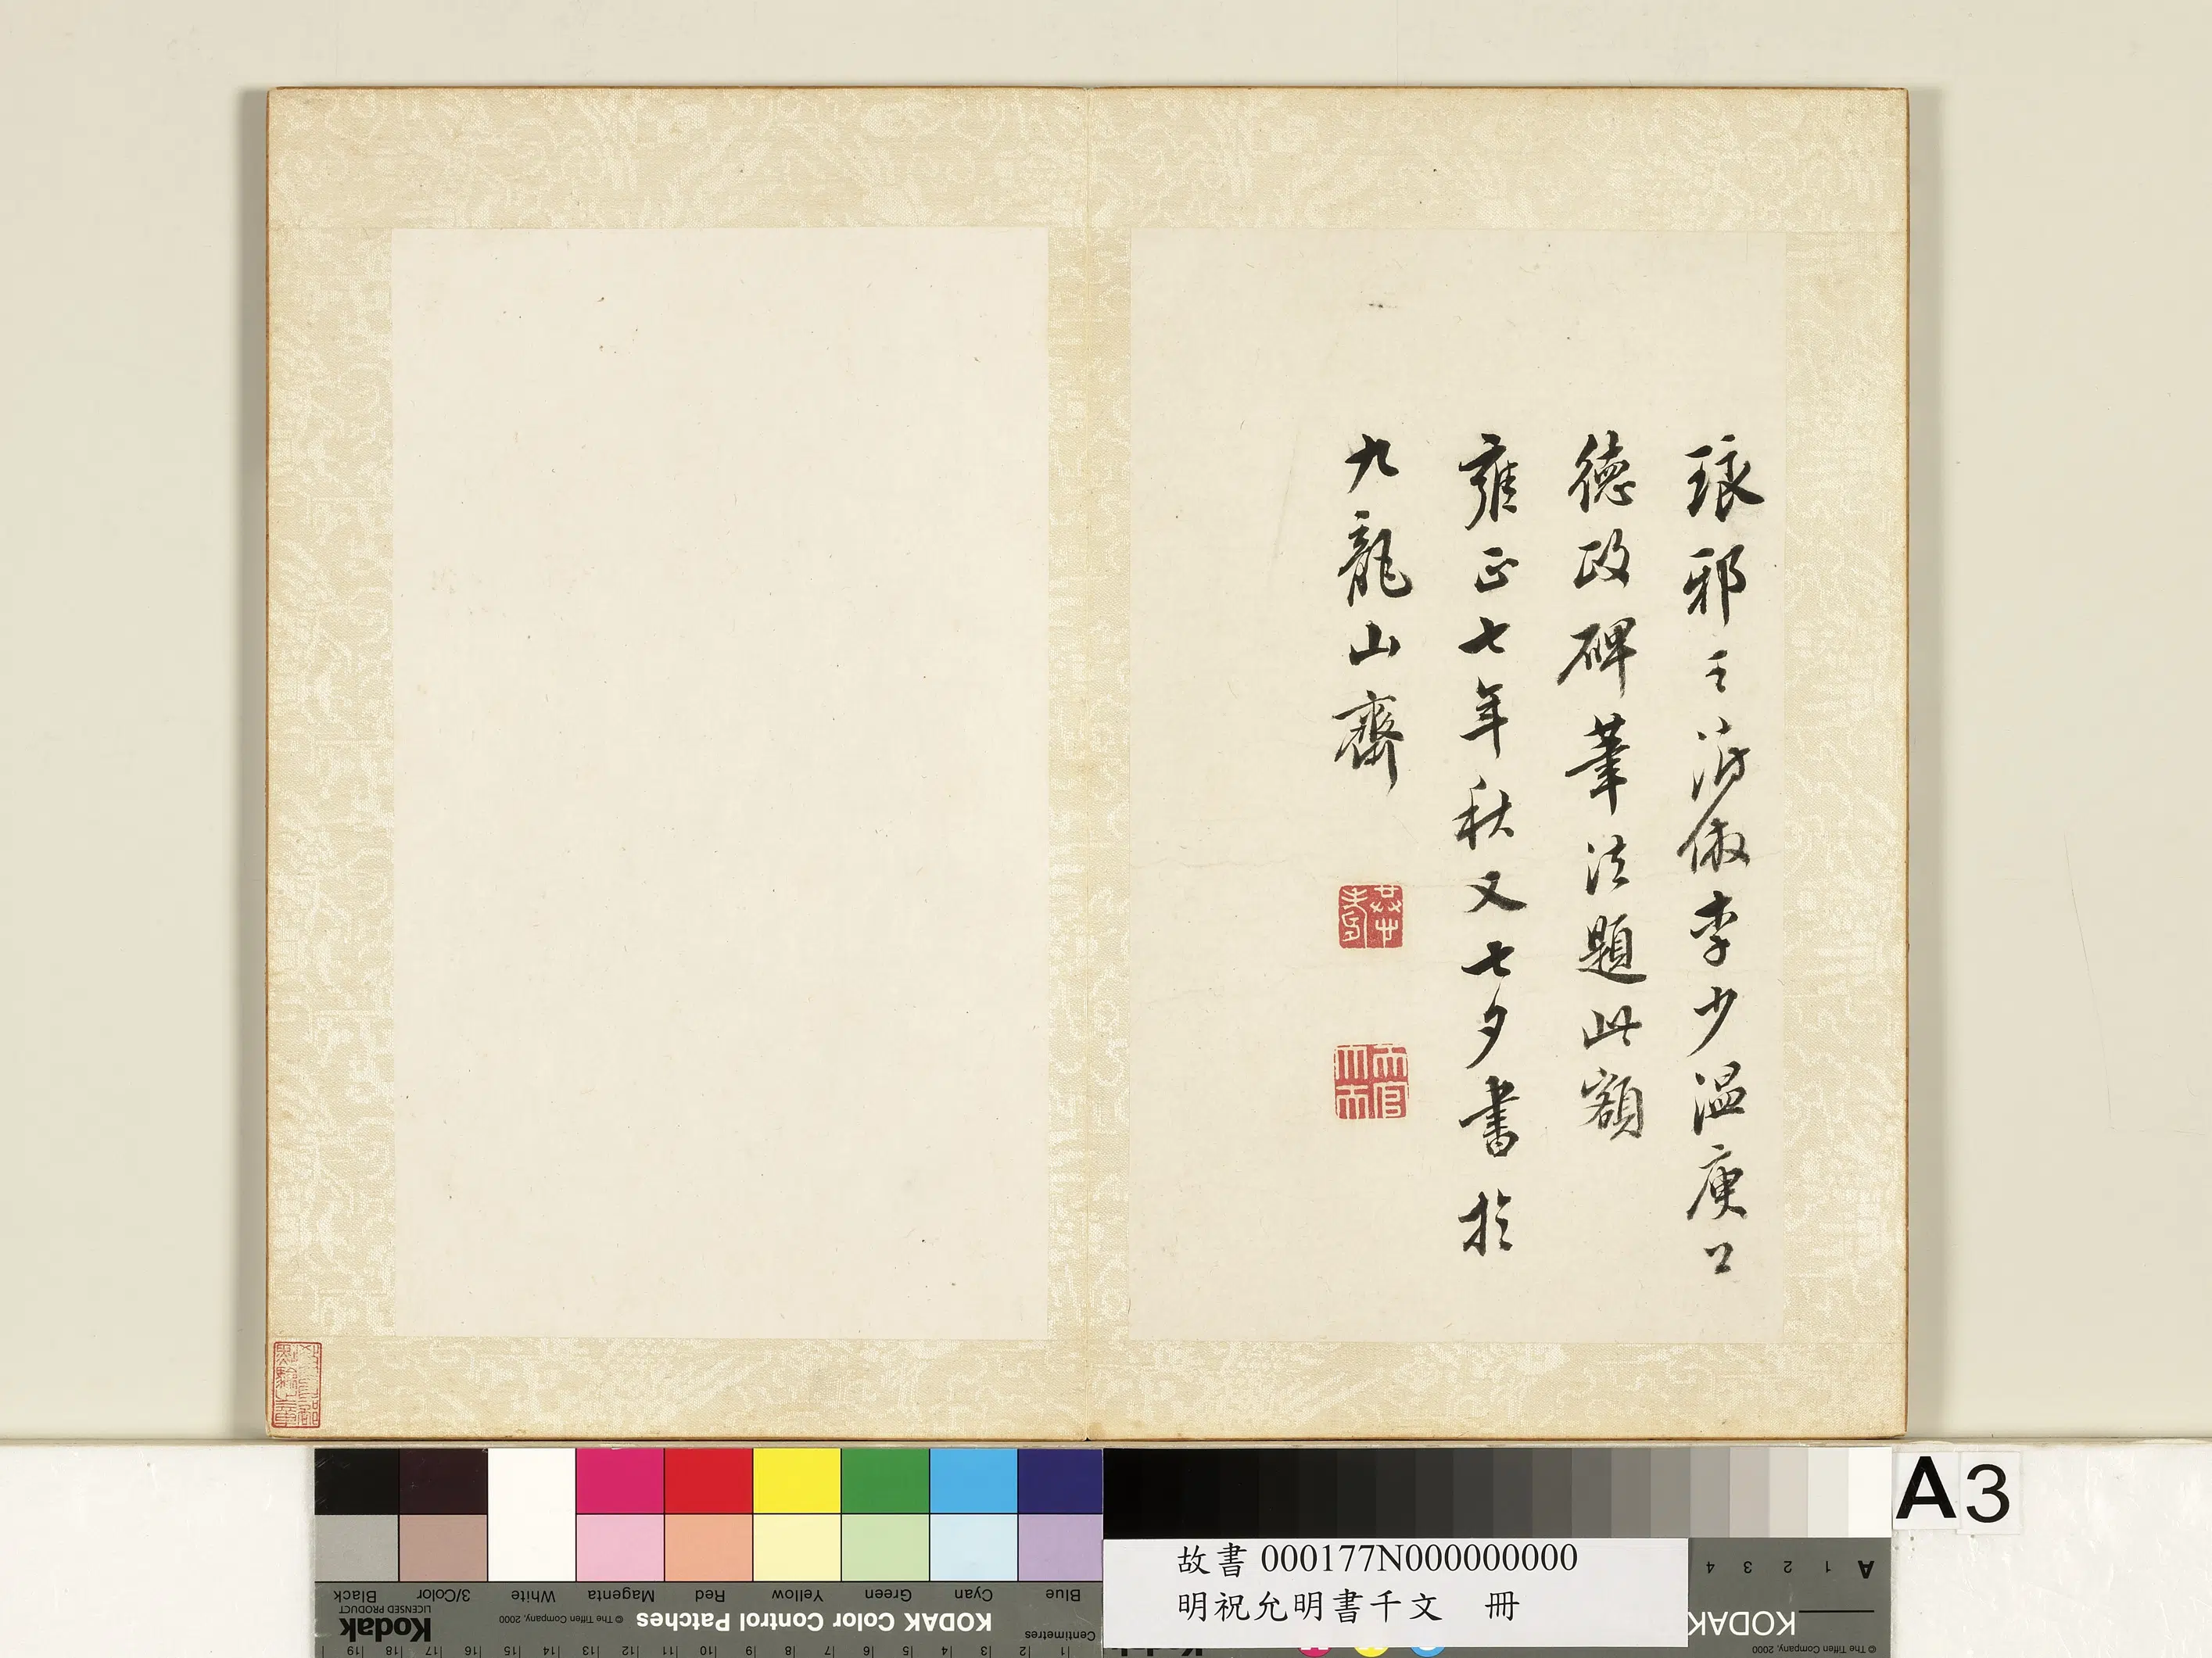 琅邪王澍倣李少温庾公
德政碑筆法題此額
雍正七年秋又七夕書於
九龍山齋
A3
故書 000177N000000000
明祝允明書千文 冊
Blue
Cyan
Green
Yellow
Red
Magenta
White
3/Color
Black
KODAK Color Control Patches
© The Tiffen Company, 2000
Kodak
LICENSED PRODUCT
Centimetres
1 2 3 4 5 6 7 8 9 10 11 12 13 14 15 16 17 18 19
A 1 2 3 4
KODAK
© The Tiffen Company, 2000